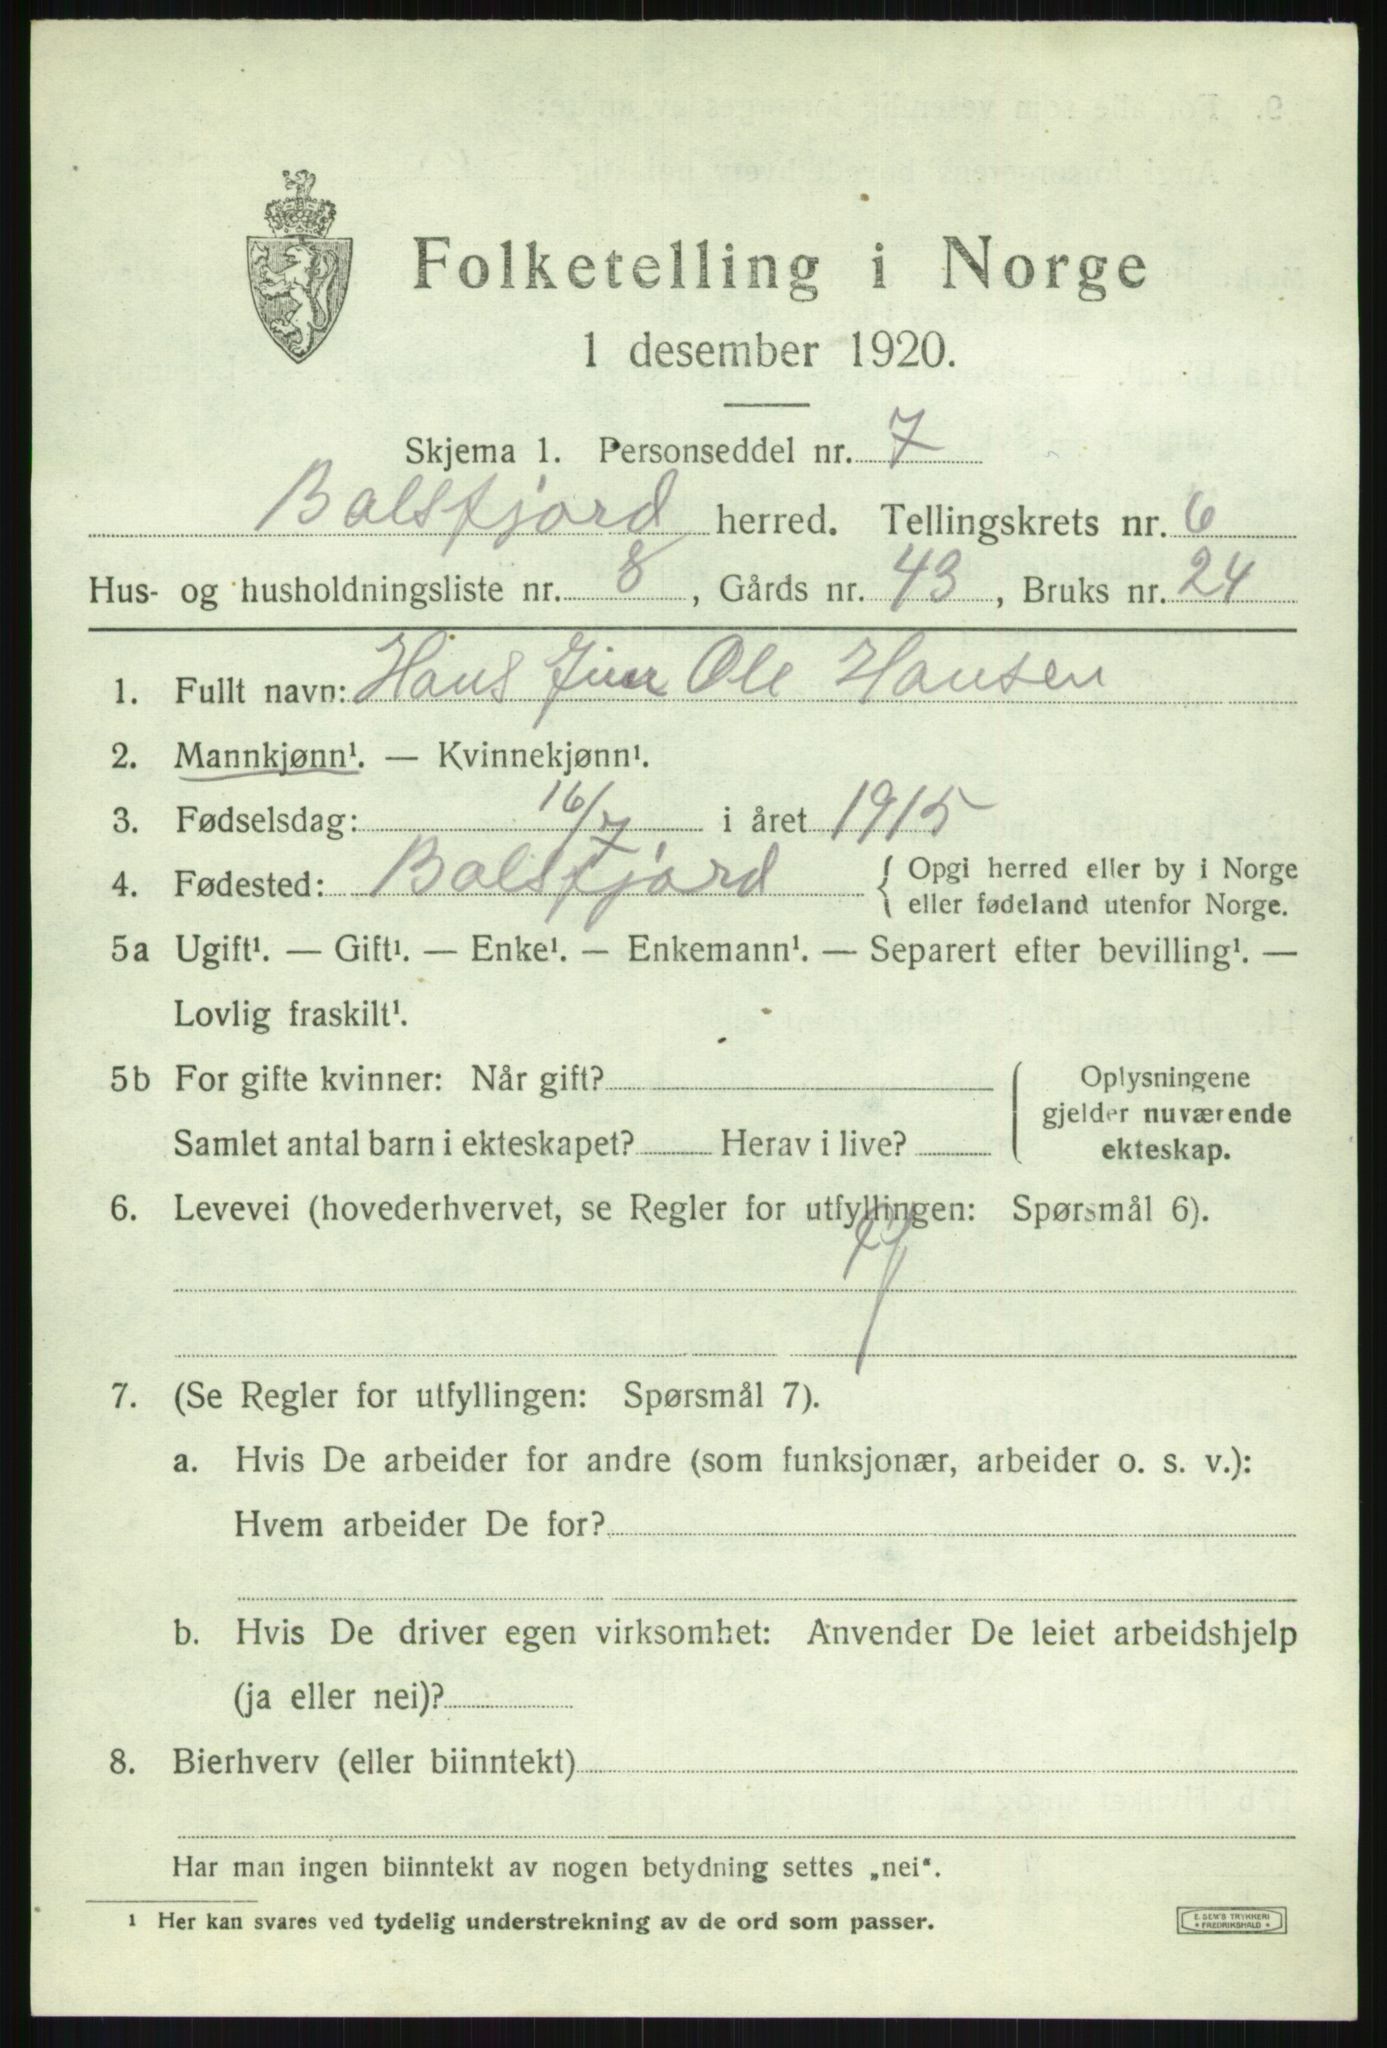 Folketelling i Norge
1 desember 1920.
Skjema 1. Personseddel nr. 7
Balsfjord herred. Tellingskrets nr. 6
Hus- og husholdningsliste nr. 8, Gårds nr. 43, Bruks nr. 24
1. Fullt navn: Hans Ole Hansen
2. Mannkjønn¹. — Kvinnekjønn¹.
3. Fødselsdag: 16/7 i året 1915
4. Fødested: Balsfjord { Opgi herred eller by i Norge
eller fødeland utenfor Norge.
5a Ugift¹. — Gift¹. — Enke¹. — Enkemann¹. — Separert efter bevilling¹. —
Lovlig fraskilt¹.
5b For gifte kvinner: Når gift?
Samlet antal barn i ekteskapet? Herav i live?
Oplysningene
gjelder nuværende
ekteskap.
6. Levevei (hovederhvervet, se Regler for utfyllingen: Spørsmål 6).
7. (Se Regler for utfyllingen: Spørsmål 7).
a. Hvis De arbeider for andre (som funksjonær, arbeider o. s. v.):
Hvem arbeider De for?
b. Hvis De driver egen virksomhet: Anvender De leiet arbeidshjelp
(ja eller nei)?
8. Bierhverv (eller biinntekt)
Har man ingen biinntekt av nogen betydning settes „nei“.
¹ Her kan svares ved tydelig understrekning av de ord som passer.
E. SEM'S TRYKKERI
* FREDRIKSHALD *